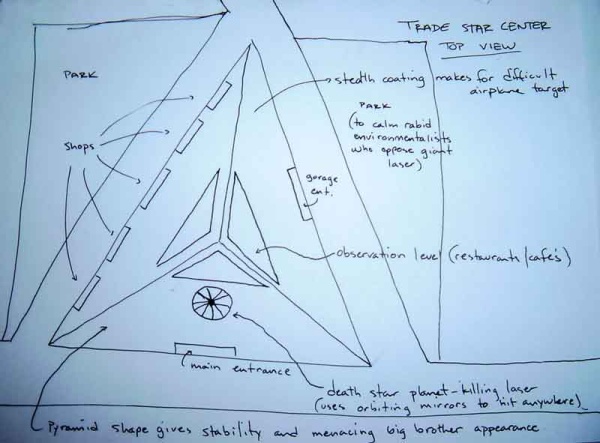 TRADE STAR CENTER
TOP VIEW
PARK
steath coating makes for difficult
airplane target
PARK
(to calm rabid
environmentalists
who oppose giant
laser)
shops
garage
ent.
observation level (restaurants/cafe's)
main entrance
death star planet-killing laser
(uses orbiting mirrors to hit anywhere)
Pyramid shape gives stability and menacing big brother appearance